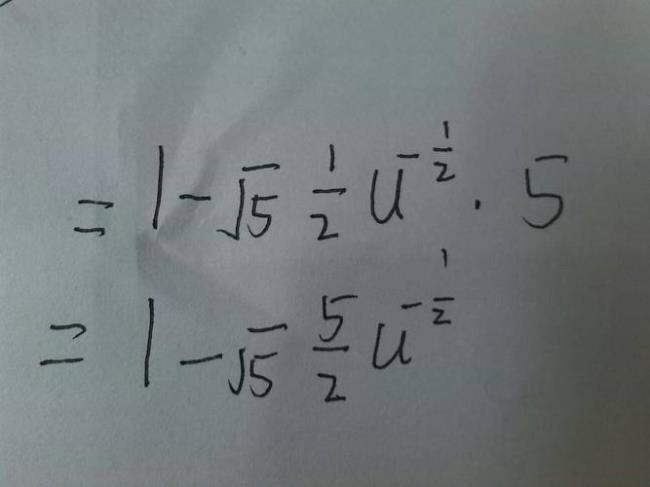 = 1 - √5 1/2 u^{-1/2} · 5
= 1 - √5 5/2 u^{-1/2}